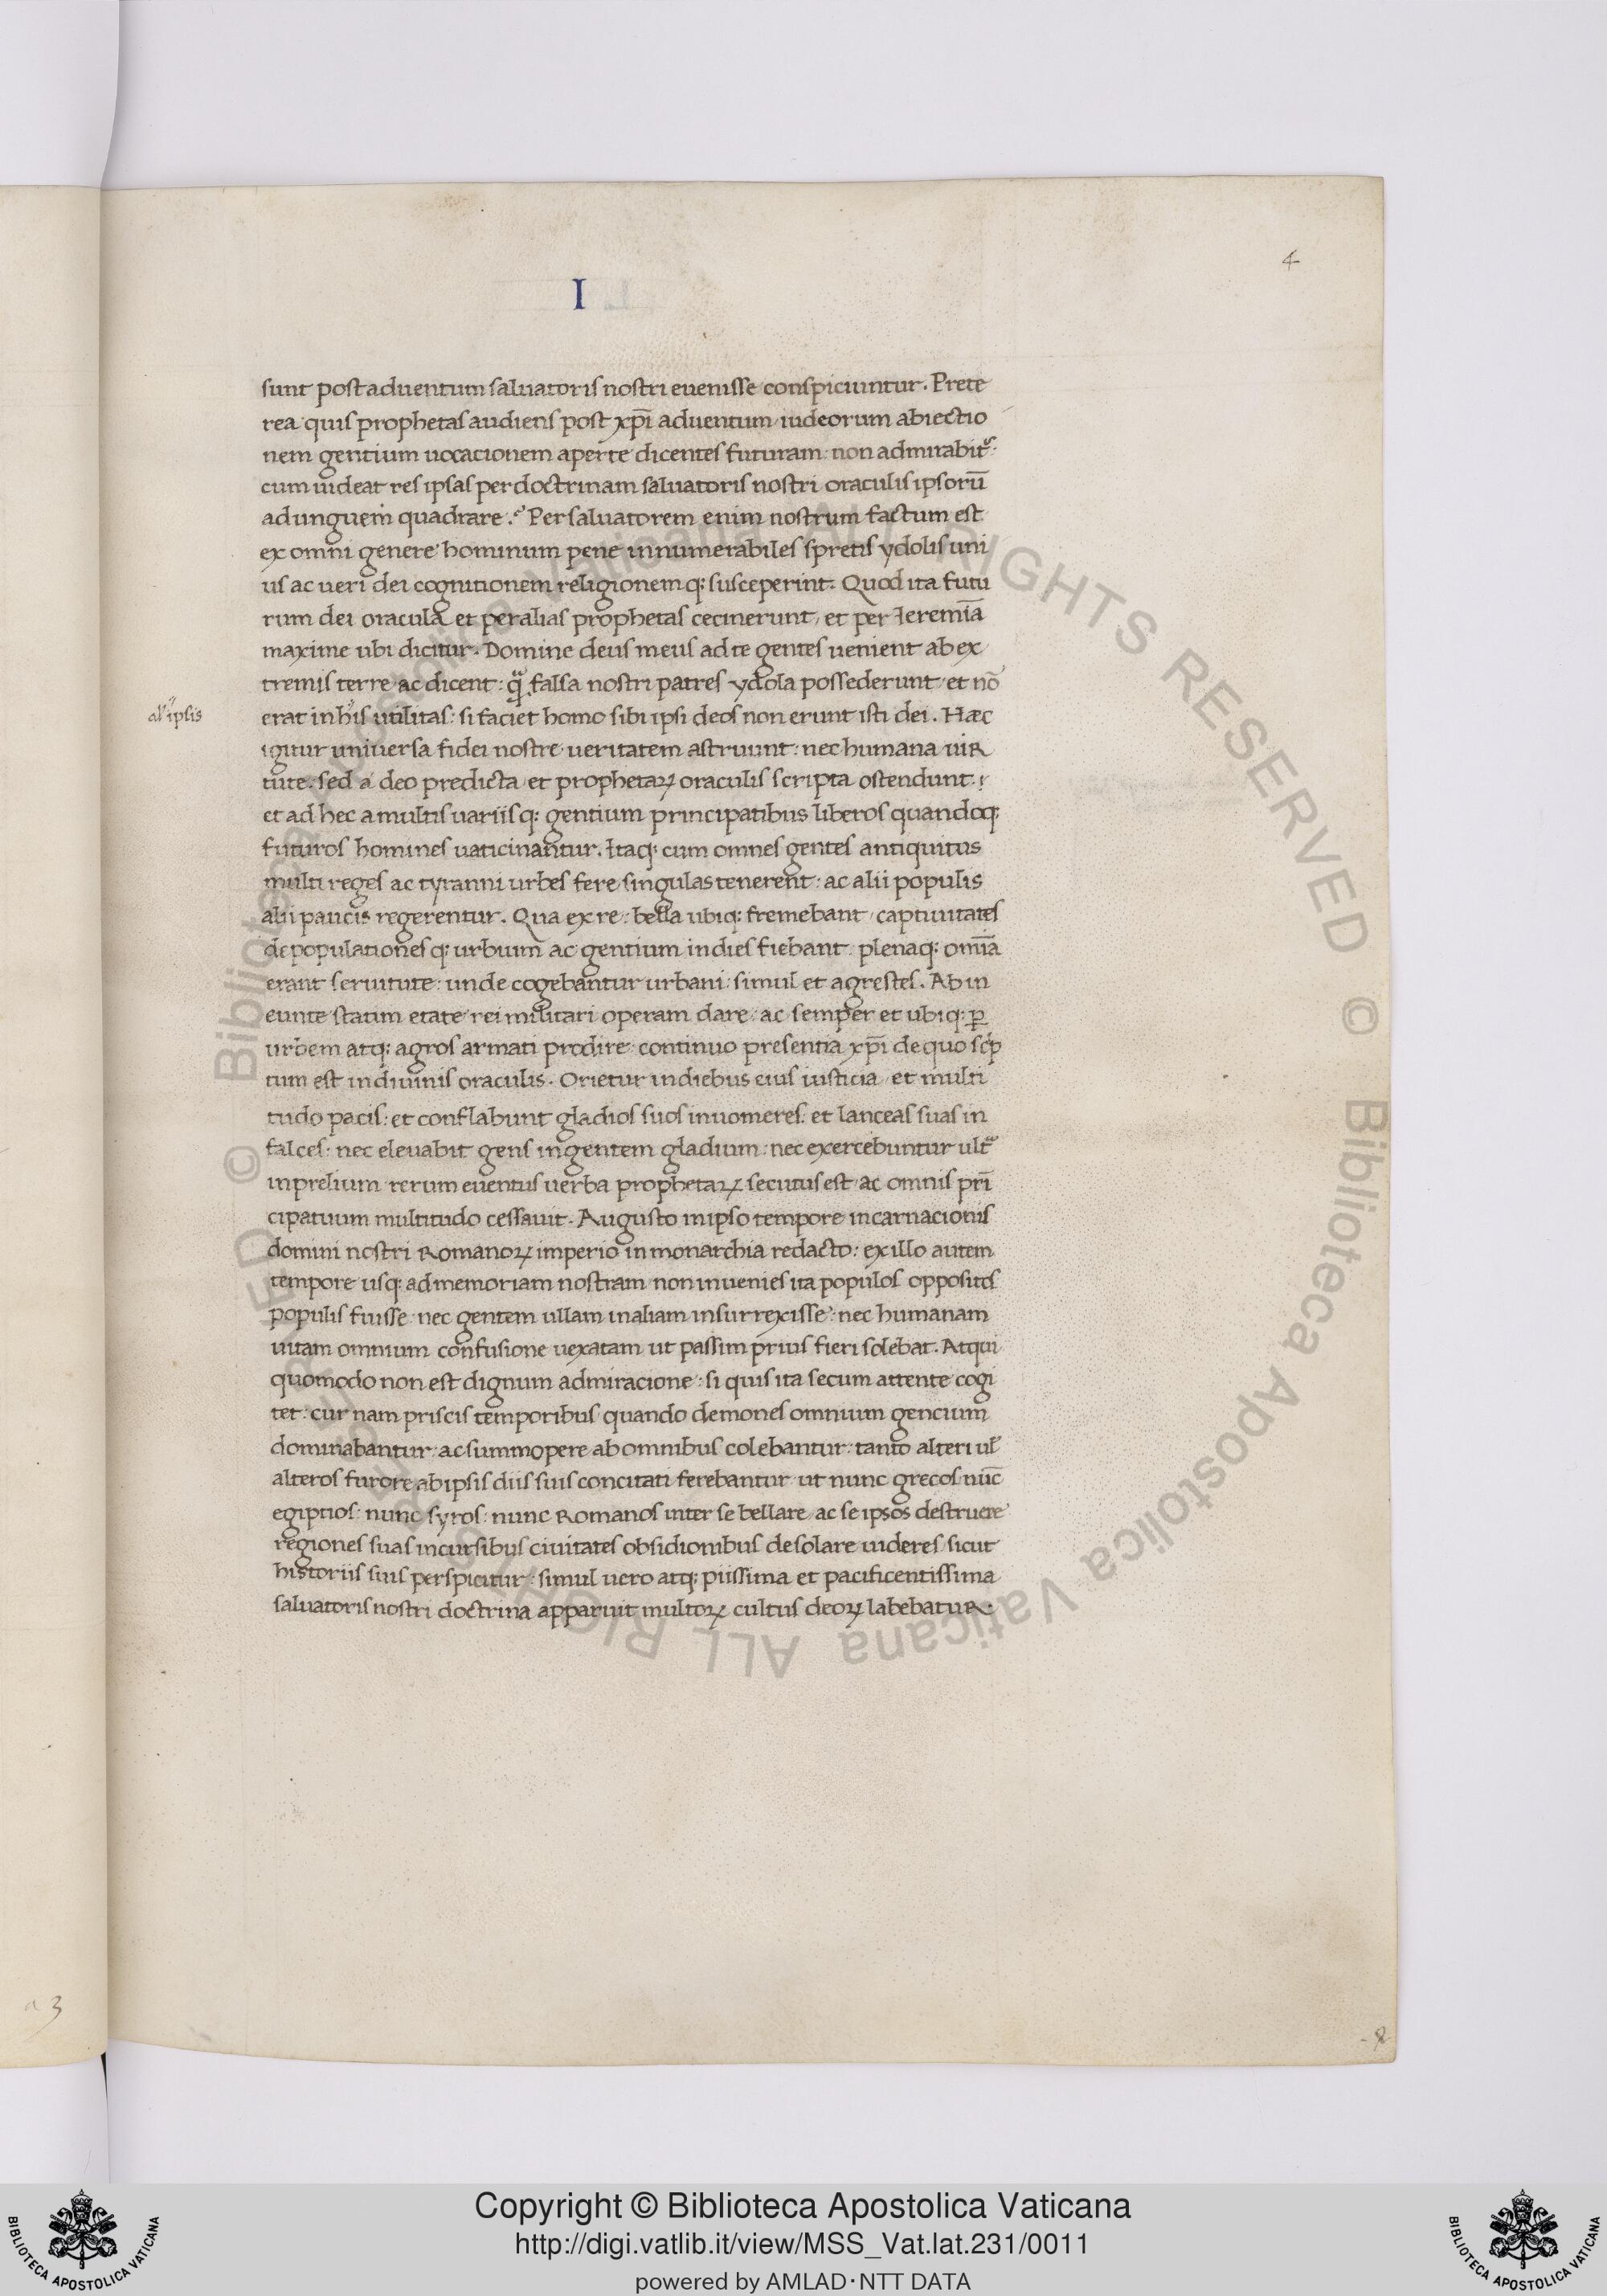 4
I
sunt post aduentum saluatoris nostri euenisse conspiciuntur. Prete
rea quis prophetas audiens post xp̄i aduentum iudeorum abiectio
nem gentium uocacionem aperte dicentes futuram: non admirabit᷑:
cum uideat res ipsas per doctrinam saluatoris nostri oraculis ipsorū
ad unguem quadrare.? Per saluatorem enim nostrum factum est
ex omni genere hominum pene innumerabiles spretis ydolis uni
us ac ueri dei cognitionem religionemq; susceperint. Quod ita futu
rum dei oracula et per alias prophetas cecinerunt, et per Ieremiā
maxime ubi dicitur. Domine deus meus ad te gentes uenient ab ex
tremis terre ac dicent: qᷓ falsa nostri patres ydola possederunt et nō
al' ipsis
erat in his utilitas: si faciet homo sibi ipsi deos non erunt isti dei. Hæc
igitur uniuersa fidei nostre ueritatem astruunt: nec humana uir
tute: sed a deo predicta et prophetaꝝ oraculis scripta ostendunt.
et ad hec a multis uariisq; gentium principatibus liberos quandoq;
futuros homines uaticinantur. Itaq; cum omnes gentes antiquitus
multi reges ac tyranni urbes fere singulas tenerent: ac alii populis
alii paucis regerentur. Qua ex re: bella ubiq; fremebant, captiuitates
depopulationesq; urbium ac gentium indies fiebant plenaq; omīa
erant seruitute: unde cogebantur urbani: simul et agrestes. Ab in
eunte statim etate rei militari operam dare: ac semper et ubiq; ꝑ
urbem atq; agros armati prodire: continuo presentia xp̄i de quo scp̄
tum est in diuinis oraculis. Orietur in diebus eius iusticia et multi
tudo pacis: et conflabunt gladios suos in uomeres: et lanceas suas in
falces: nec eleuabit gens in gentem gladium: nec exercebuntur ultᷓ
in prelium rerum euentus uerba prophetaꝝ secutus est ac omnis prī
cipatuum multitudo cessauit. Augusto in ipso tempore incarnacionis
domini nostri Romanoꝝ imperio in monarchia redacto: ex illo autem
tempore usq; ad memoriam nostram non inuenies ita populos oppositos
populis fuisse nec gentem ullam in aliam insurrexisse: nec humanam
uitam omnium confusione uexatam ut passim prius fieri solebat. Atqui
quomodo non est dignum admiracione: si quis ita secum attente cogi
tet: cur nam priscis temporibus quando demones omnium gencium
dominabantur: ac summopere ab omnibus colebantur: tanto alteri ul'
alteros furore ab ipsis diis suis concitati ferebantur ut nunc grecos nūc
egiptios: nunc syros: nunc Romanos inter se bellare, ac se ipsos destruere
regiones suas incursibus ciuitates obsidionibus desolare uideres, sicut
historiis suis perspicitur: simul uero atq; piissima et pacificentissima
saluatoris nostri doctrina apparuit multoꝝ cultus deoꝝ labebatur
a 3
© Biblioteca Apostolica Vaticana ALL RIGHTS RESERVED © Biblioteca Apostolica Vaticana ALL RIGHTS RESERVED
Copyright © Biblioteca Apostolica Vaticana
http://digi.vatlib.it/view/MSS_Vat.lat.231/0011
powered by AMLAD·NTT DATA
BIBLIOTECA APOSTOLICA VATICANA
BIBLIOTECA APOSTOLICA VATICANA